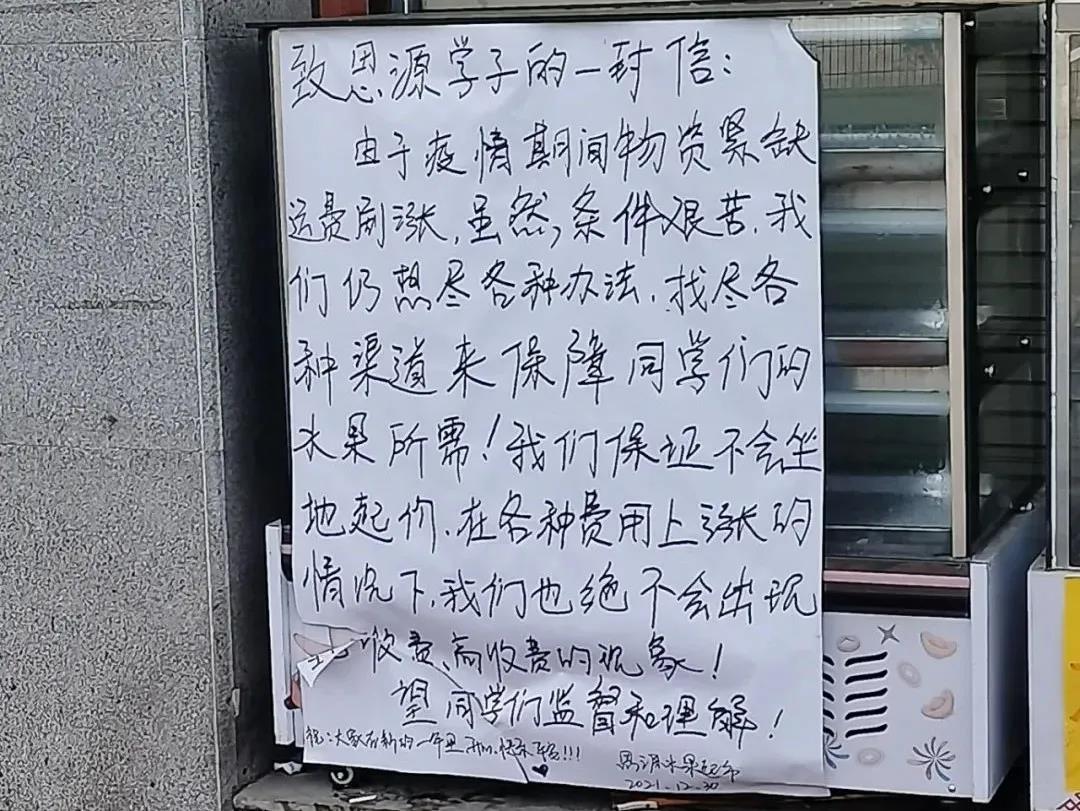 致思源学子的一封信：
由于疫情期间物资紧缺
运费刷涨，虽然，条件艰苦，我
们仍想尽各种办法，找尽各
种渠道来保障同学们的
水果所需！我们保证不会坐
地起价，在各种费用上涨的
情况下，我们也绝不会出现
收费、高收费的现象！
望同学们监督和理解！
祝：大家在新的一年里开心、快乐!!!
思源水果超市
2021.12.30